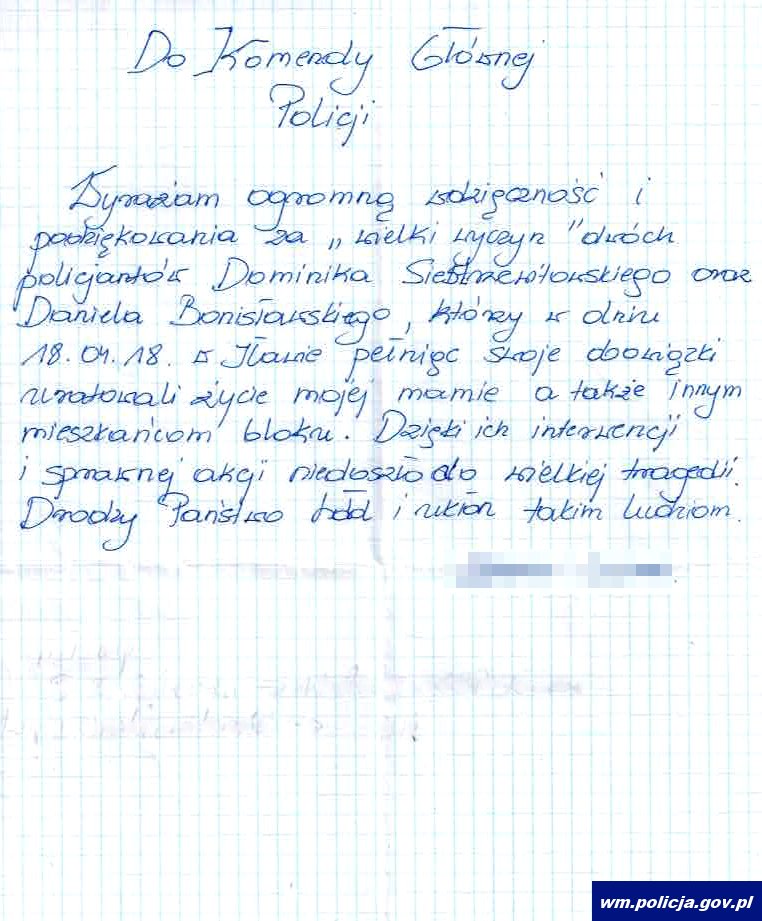 Do Komendy Głównej
Policji
Wyrażam ogromną wdzięczność i
podziękowania za „wielki wyczyn" dwóch
policjantów Dominika oraz
Daniela Bonisławskiego, którzy w dniu
18.04.18. w Iławie pełniąc swoje obowiązki
uratowali życie mojej mamie a także innym
mieszkańcom bloku. Dzięki ich interwencji
i sprawnej akcji niedoszło do wielkiej tragedii.
Drodzy Państwo hołd i ukłon takim ludziom.
wm.policja.gov.pl